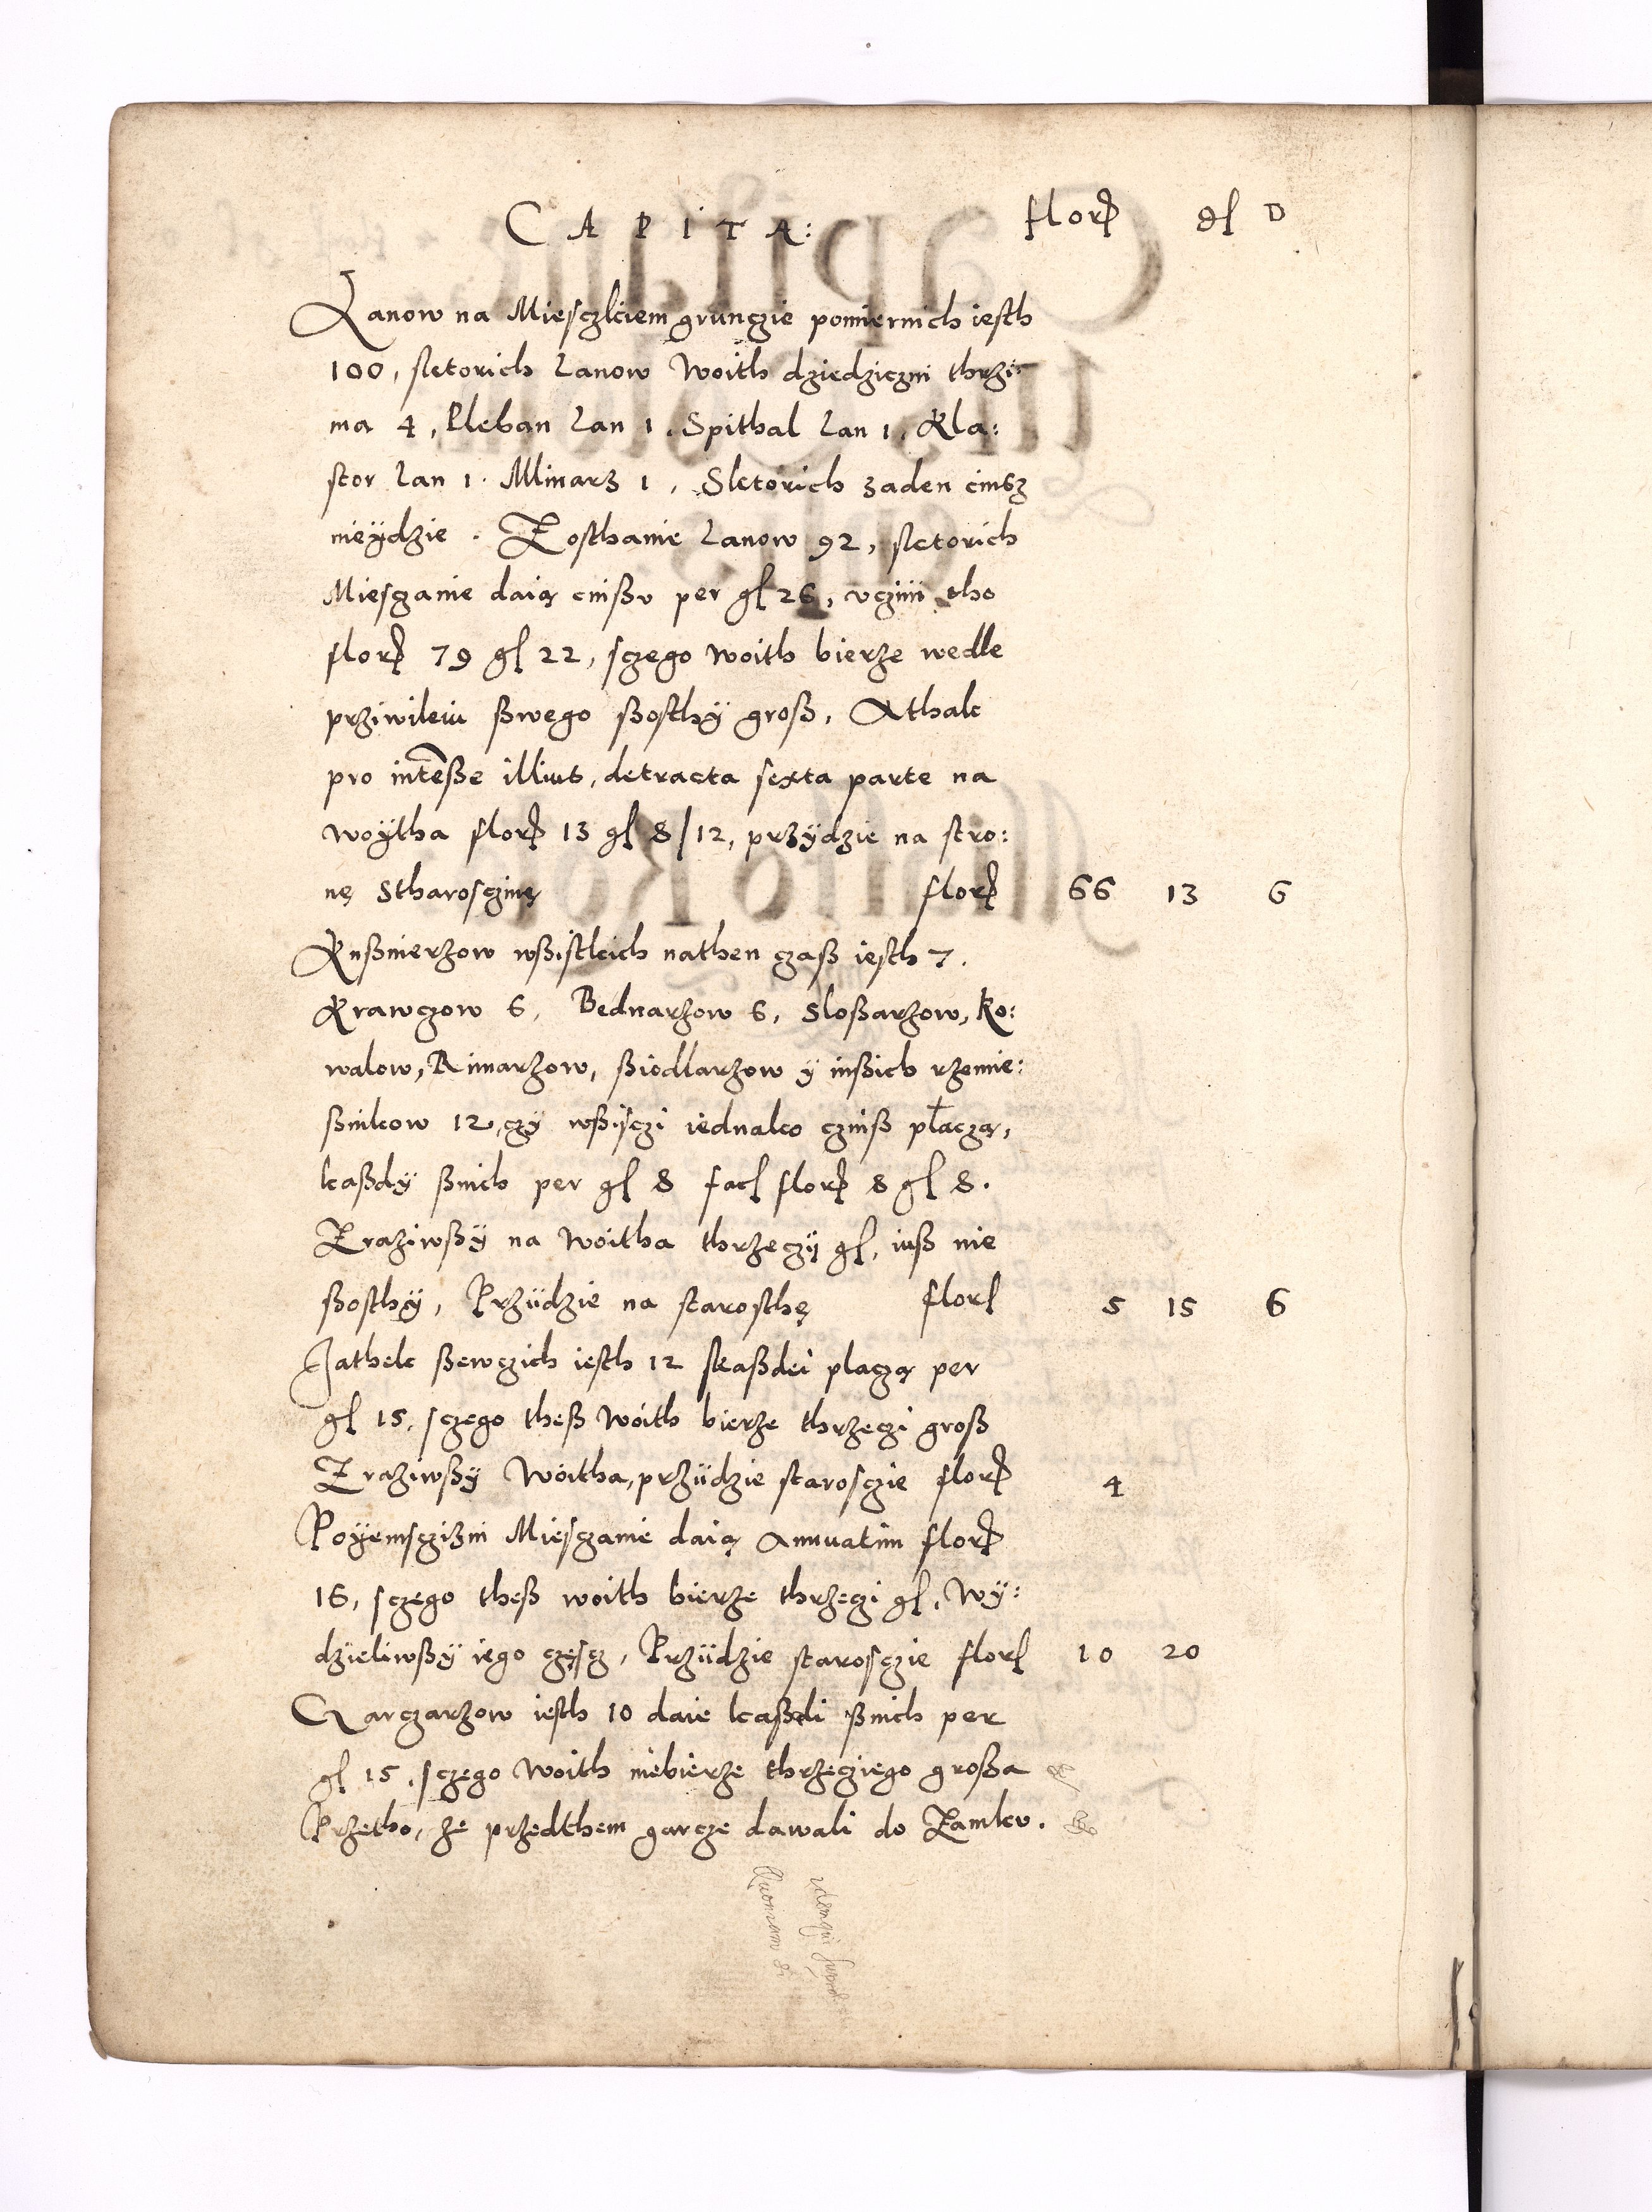 CAPITA: florẜ gł D
Lanow na Miesczkiem grunczie pomiernich iesth
100, sktorich Lanow Woith dziedziczni thrzi:
ma 4, Pleban Lan 1. Spithal Lan 1. Kla:
stor Lan 1. Mlinarz 1, Sktorich zaden cinsz
nieÿdzie. Zosthanie Lanow 92, sktorich
Miesczanie daią cnißv per gł 26, vczini tho
florẜ 79 gł 22, sczego woith bierze wedle
prziwileiu ßwego ßosthÿ groß, Athak
pro inteße illius, detracta sexta parte na
woÿtha florẜ 13 gł 8/12, przÿdzie na stro:
nę Stharosczinę florẜ 66 13 6
Kußnierzow wßistkich nathen czaß iesth 7.
Krawczow 6, Bednarzow 6, Sloßarzow, Ko:
walow, Rimarzow, ßiodlarzow y inßich rzemie:
ßnikow 12, czy wßisczi iednako czinß płaczą,
kaßdy ßnich per gł 8 facł florẜ 8 gł 8.
Zraziwßÿ na Woitha thrzeczÿ gł, iuß nie
ßosthÿ, Przÿdzie na starosthę florł 5 15 6
Jathek ßewczich iesth 12 skaßdei placzą per
gł 15, sczego theß Woith bierze thrzeczi groß
Zraziwßy Woitha, przÿdzie starosczie florẜ 4
Poÿemsczizni Miesczanie daią Annuatim florẜ
16, sczego theß woith bierze thrzeczi gł, Wÿ:
dzieliwßÿ iego częscz, Przÿdzie starosczie florł 10 20
Karczarzow iesth 10 daie kaßdi ßnich per
gł 15, sczego Woith niebierze thrzecziego großa
Przetho, ze przedthem garcze dawali do Zamkv.
Quoniam